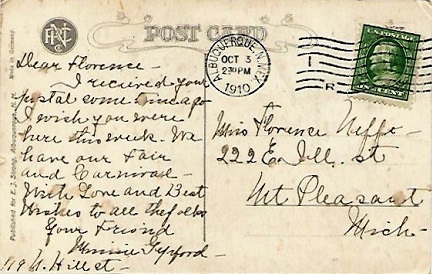 POST CARD
Made in Germany.
ALBUQUERQUE, N. MEX.
OCT 3
2:30 PM
1910
U.S. POSTAGE
ONE CENT
Dear Florence -
I received your
postal some time ago
I wish you were
here this week. We
have our Fair
and Carnival -
With Love and Best
Wishes to all the folks
Your Friend
Minnie
N. Hill st -
Miss Florence Neff
222 E. Ill. st
Mt Pleasant
Mich -